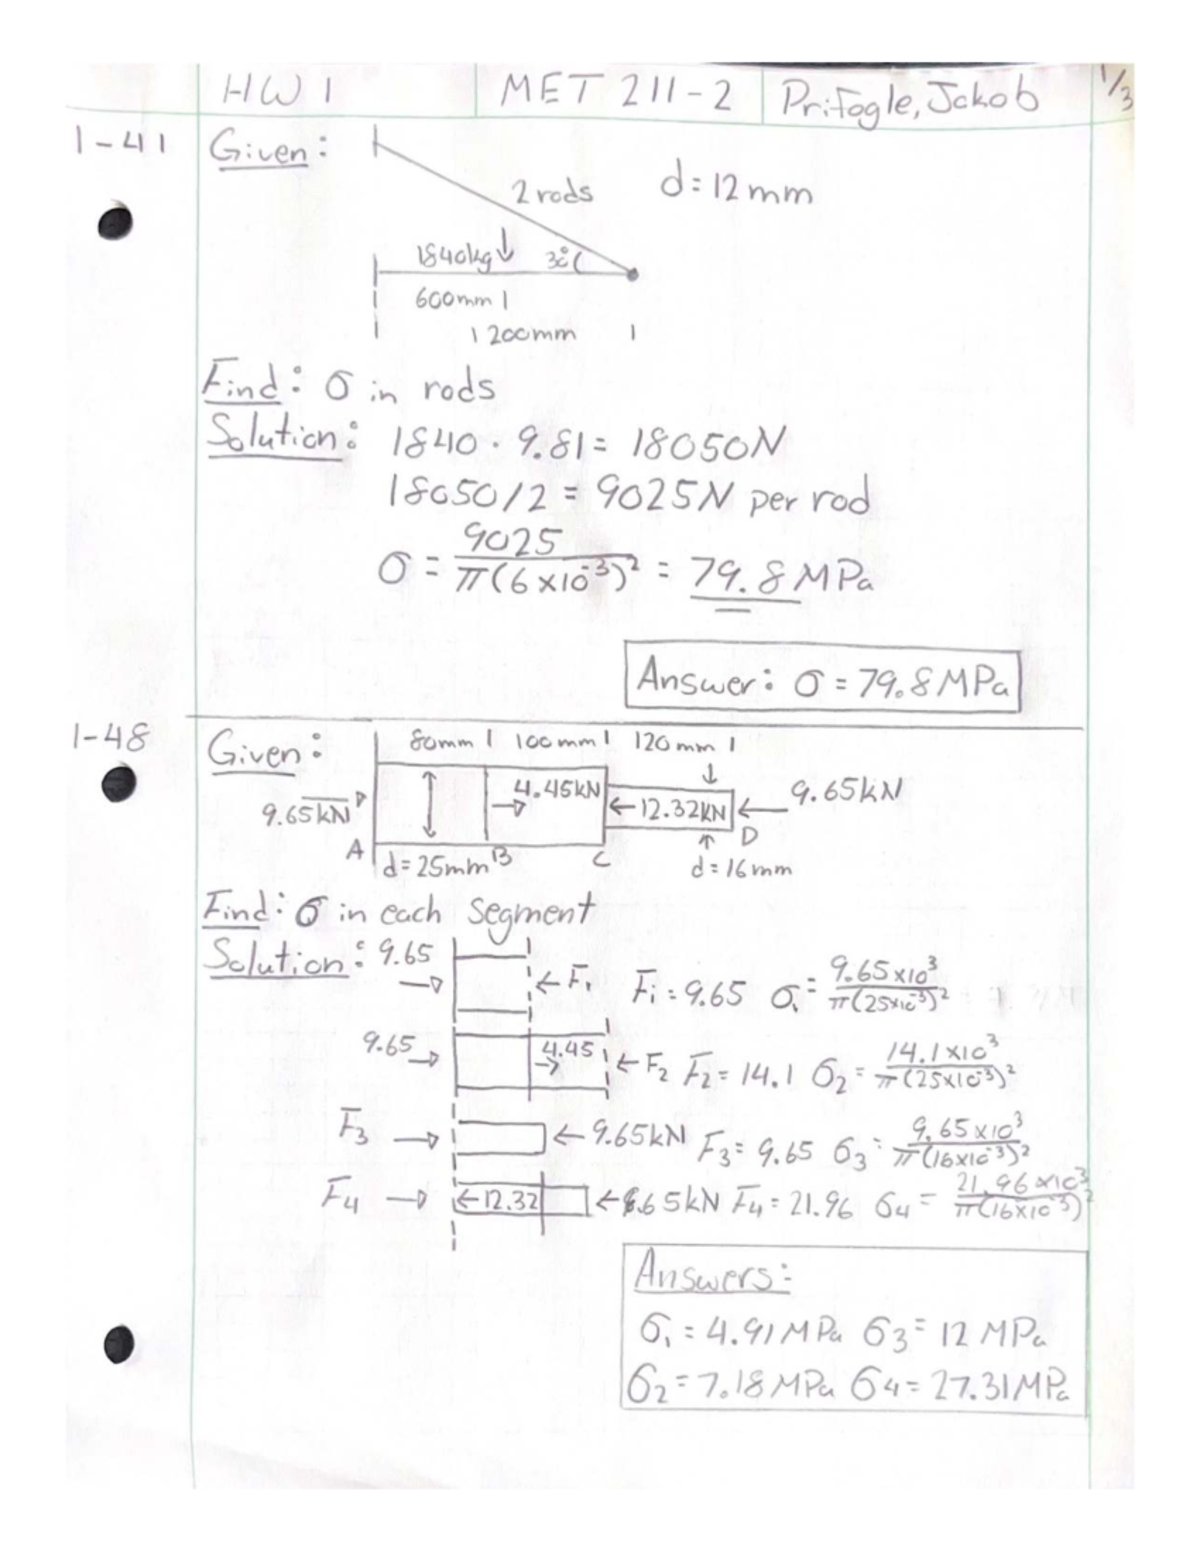 HW 1 MET 211-2 Prifogle, Jakob 1/3
1-41 Given:
2 rods d=12mm
1840kg 30°
600mm
1200mm
Find: σ in rods
Solution: 1840 · 9.81 = 18050N
18050/2 = 9025N per rod
σ = 9025 / π(6×10⁻³)² = 79.8 MPa
Answer: σ = 79.8 MPa
1-48 Given:
80mm 100mm 120mm
9.65kN 4.45kN 12.32kN 9.65kN
A B C D
d=25mm d=16mm
Find: σ in each segment
Solution: 9.65 F₁ F₁ = 9.65 σ₁ = 9.65×10³ / π(25×10⁻³)²
9.65 4.45 F₂ F₂ = 14.1 σ₂ = 14.1×10³ / π(25×10⁻³)²
F₃ 9.65kN F₃ = 9.65 σ₃ = 9.65×10³ / π(16×10⁻³)²
F₄ 12.32 65kN F₄ = 21.96 σ₄ = 21.96×10³ / π(16×10⁻³)²
Answers:
σ₁ = 4.91 MPa σ₃ = 12 MPa
σ₂ = 7.18 MPa σ₄ = 27.31 MPa